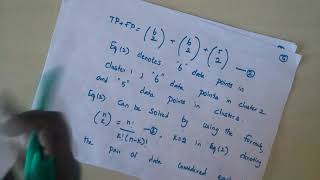 TP+FP = (6 2) + (6 2) + (5 2) — ②
Eq(2) denotes "6" data points in
cluster 1, "6" data points in cluster 2
and "5" data points in cluster 3.
Eq(2) can be solved by using the formula
(n k) = n! / k!(n-k)! — ③ . k=2 in Eq(2) denoting
the pair of data considered each